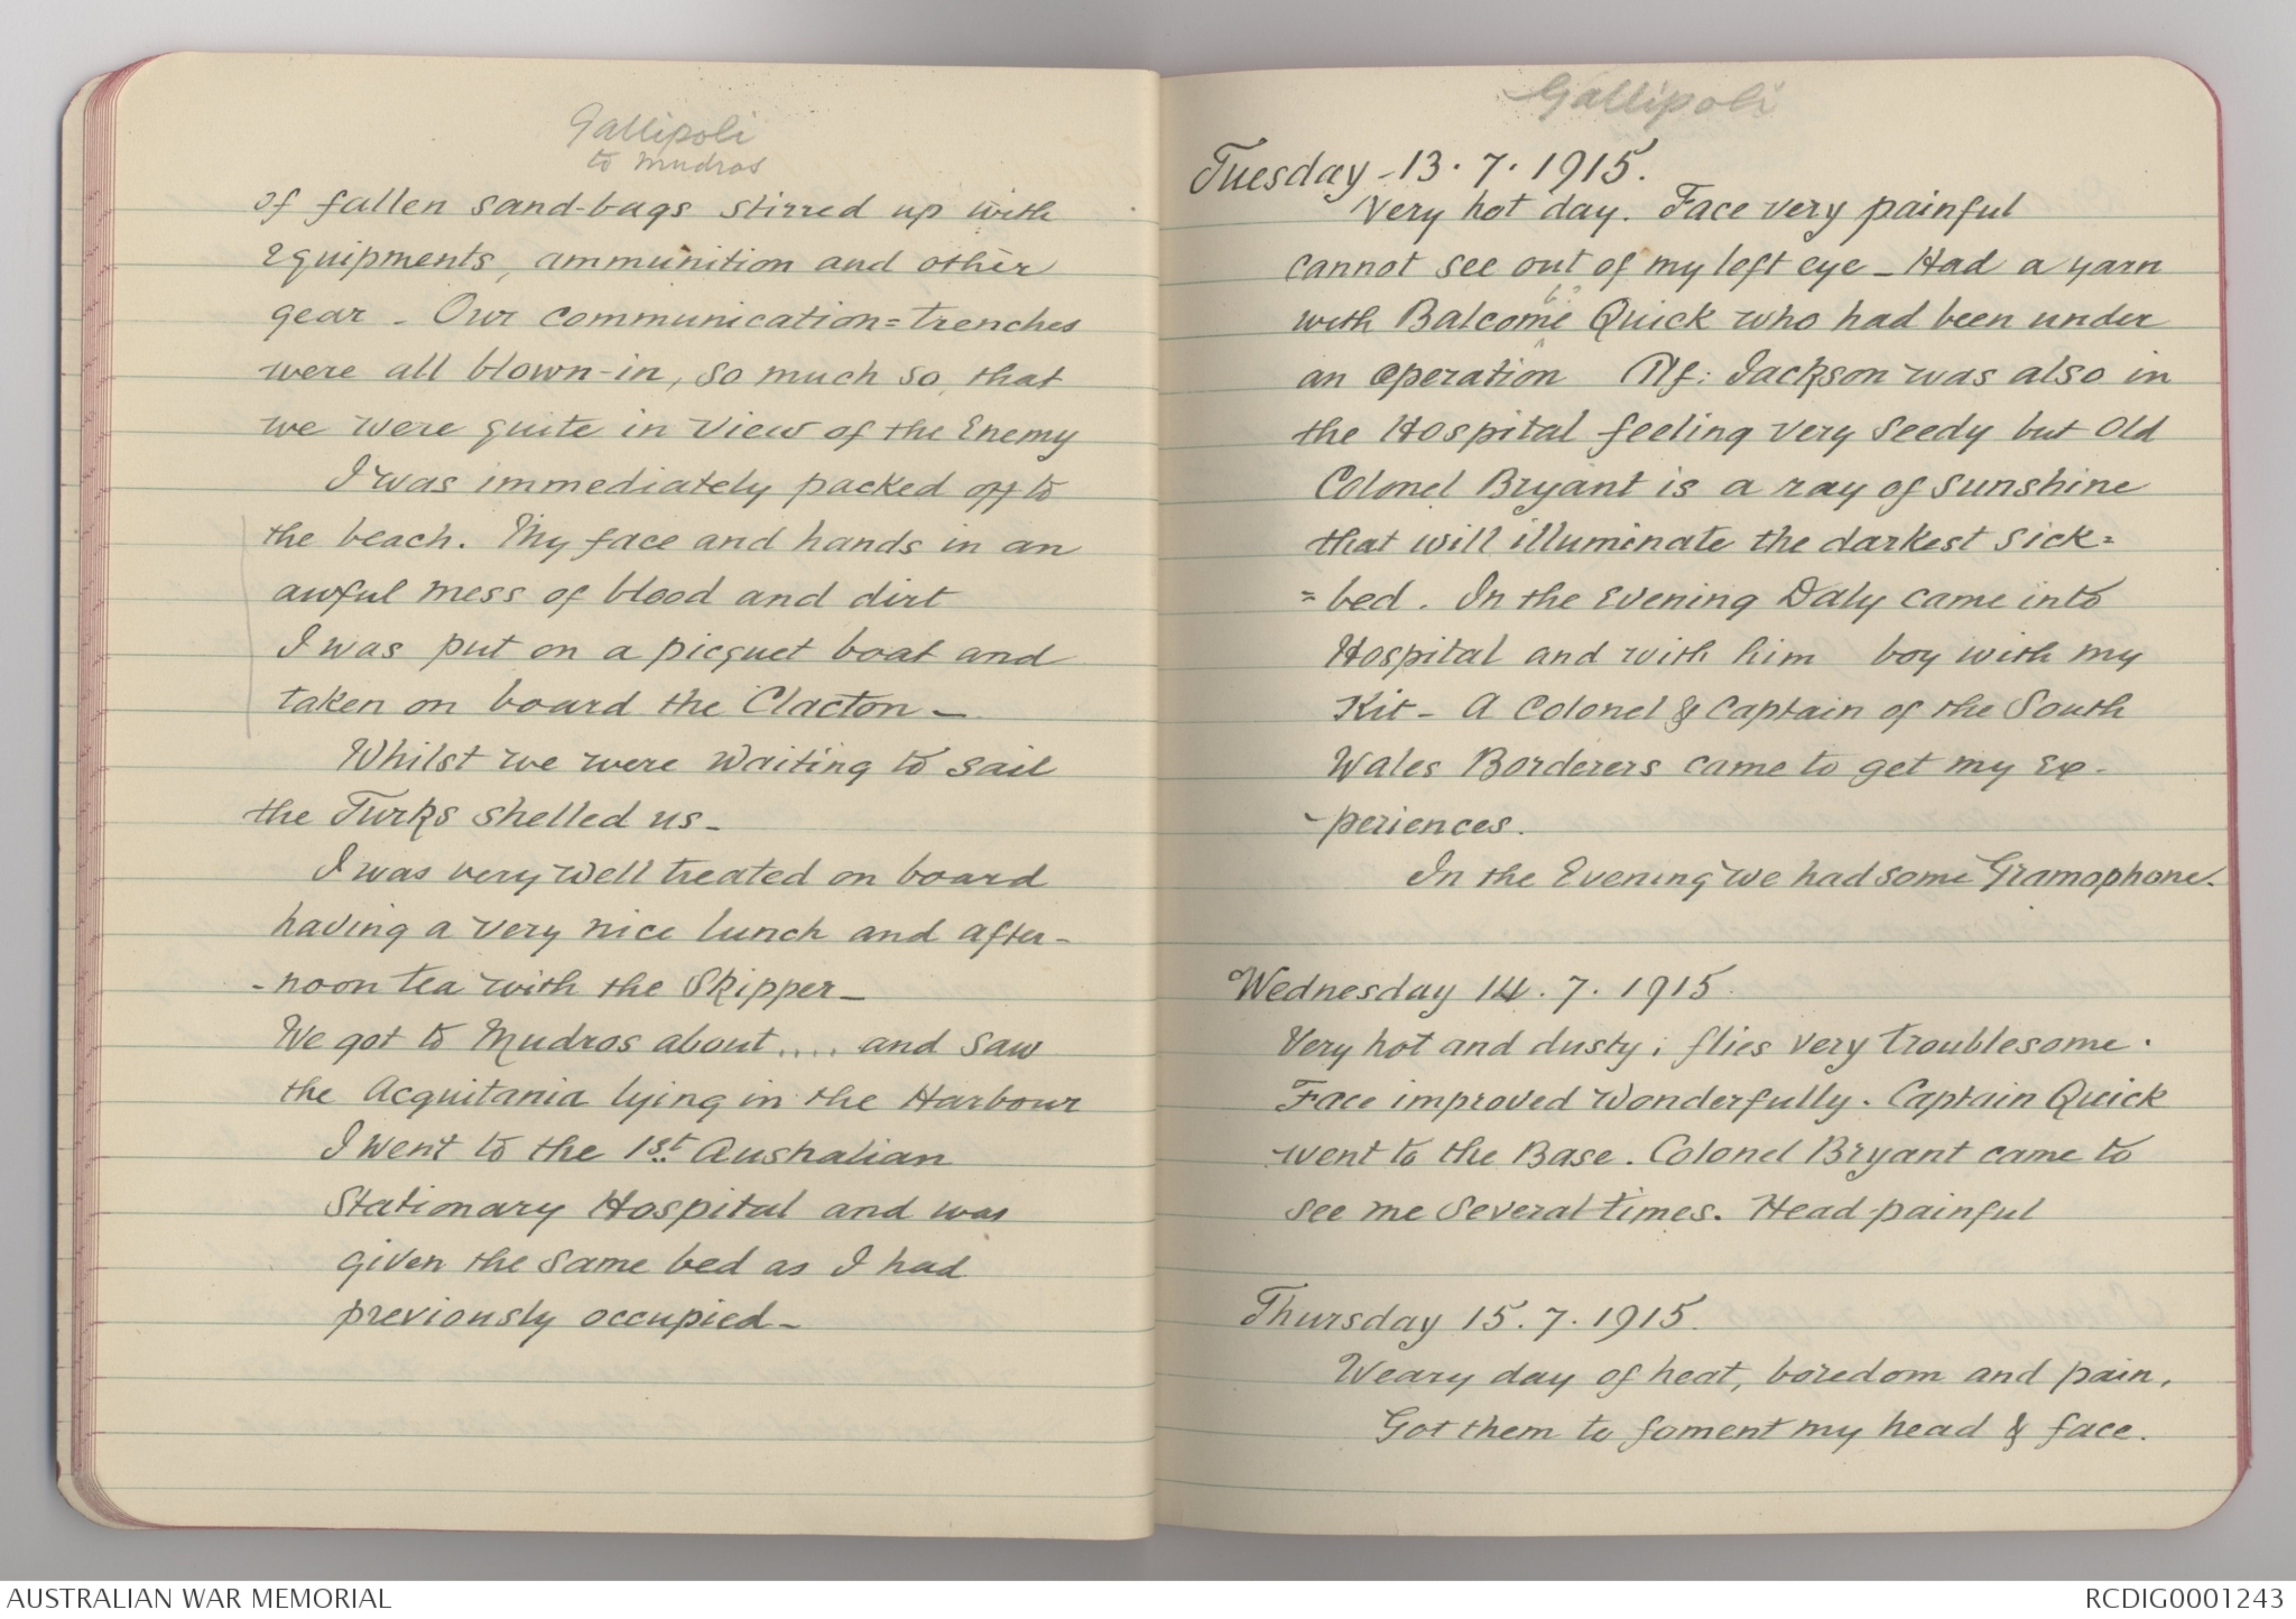 Gallipoli
to Mudros
of fallen sand-bags stirred up with
equipments, ammunition and other
gear - Our communication=trenches
were all blown-in, so much so, that
we were quite in view of the Enemy
I was immediately packed off to
the beach. My face and hands in an
awful mess of blood and dirt
I was put on a picquet boat and
taken on board the Clacton -
Whilst we were waiting to sail
the Turks shelled us -
I was very well treated on board
having a very nice lunch and after-
-noon tea with the Skipper -
We got to Mudros about .... and saw
the Acquitania lying in the Harbour
I went to the 1st. Australian
Stationary Hospital and was
given the same bed as I had
previously occupied -
Gallipoli
Tuesday - 13. 7. 1915.
Very hot day. Face very painful
cannot see out of my left eye - Had a yarn
with Balcome Quick who had been under
an operation Alf: Jackson was also in
the Hospital feeling very seedy but Old
Colonel Bryant is a ray of sunshine
that will illuminate the darkest sick=
=bed. In the Evening Daly came into
Hospital and with him boy with my
Kit - A Colonel & Captain of the South
Wales Borderers came to get my Ex-
-periences.
In the Evening we had some Gramophone.
Wednesday 14. 7. 1915.
Very hot and dusty; flies very troublesome.
Face improved wonderfully. Captain Quick
went to the Base. Colonel Bryant came to
see me several times. Head painful
Thursday 15. 7. 1915.
Weary day of heat, boredom and pain,
Got them to foment my head & face.
AUSTRALIAN WAR MEMORIAL
RCDIG0001243